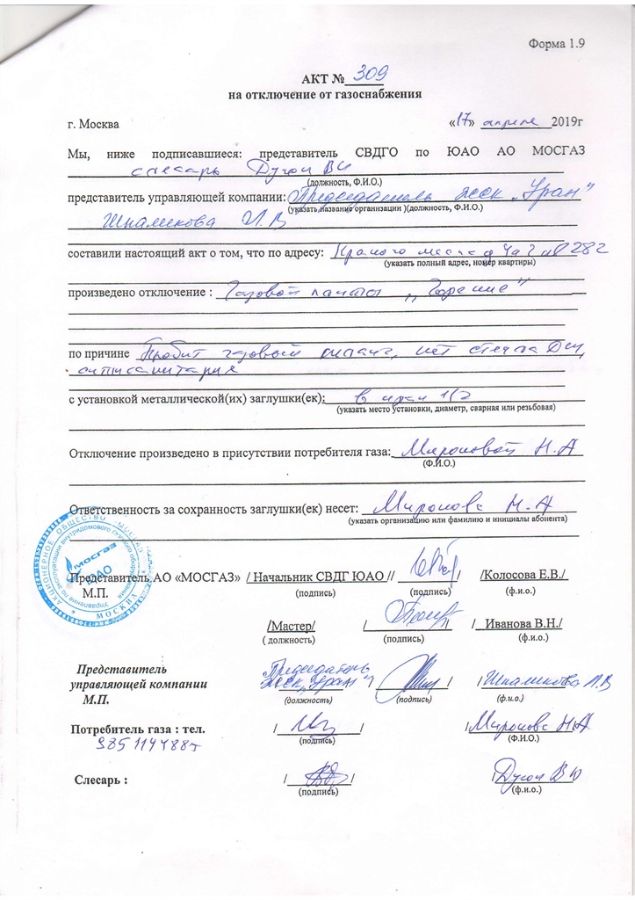 Форма 1.9
АКТ № 309
на отключение от газоснабжения
г. Москва «17» апреля 2019г
Мы, ниже подписавшиеся: представитель СВДГО по ЮАО АО МОСГАЗ
слесарь
(должность, Ф.И.О.)
представитель управляющей компании: Председатель жск „Уран"
(указать название организации )(должность, Ф.И.О.)
Шпаликова Л.В
составили настоящий акт о том, что по адресу:
(указать полный адрес, номер квартиры)
произведено отключение : Газовой плиты „Горение"
по причине Пробит газовый шланг, нет стекла
антисанитария
с установкой металлической(их) заглушки(ек); 1/2
(указать место установки, диаметр, сварная или резьбовая)
Отключение произведено в присутствии потребителя газа: Мироновой Н.А
(Ф.И.О.)
Ответственность за сохранность заглушки(ек) несет: Миронова Н.А
(указать организацию или фамилию и инициалы абонента)
АКЦИОНЕРНОЕ ОБЩЕСТВО
МОСГАЗ
ЮАО
МОСКВА
Представитель АО «МОСГАЗ» / Начальник СВДГ ЮАО // / /Колосова Е.В./
М.П. (подпись) (ф.и.о.)
/Мастер/ / / / Иванова В.Н./
( должность) (подпись) (ф.и.о.)
Представитель Председатель
управляющей компании жск „Уран" / / / /Шпаликова Л.В
М.П. (должность) (подпись) (ф.и.о.)
Потребитель газа : тел. / / /Миронова Н.А
(подпись) (Ф.И.О.)
Слесарь : / /
(подпись) (ф.и.о.)